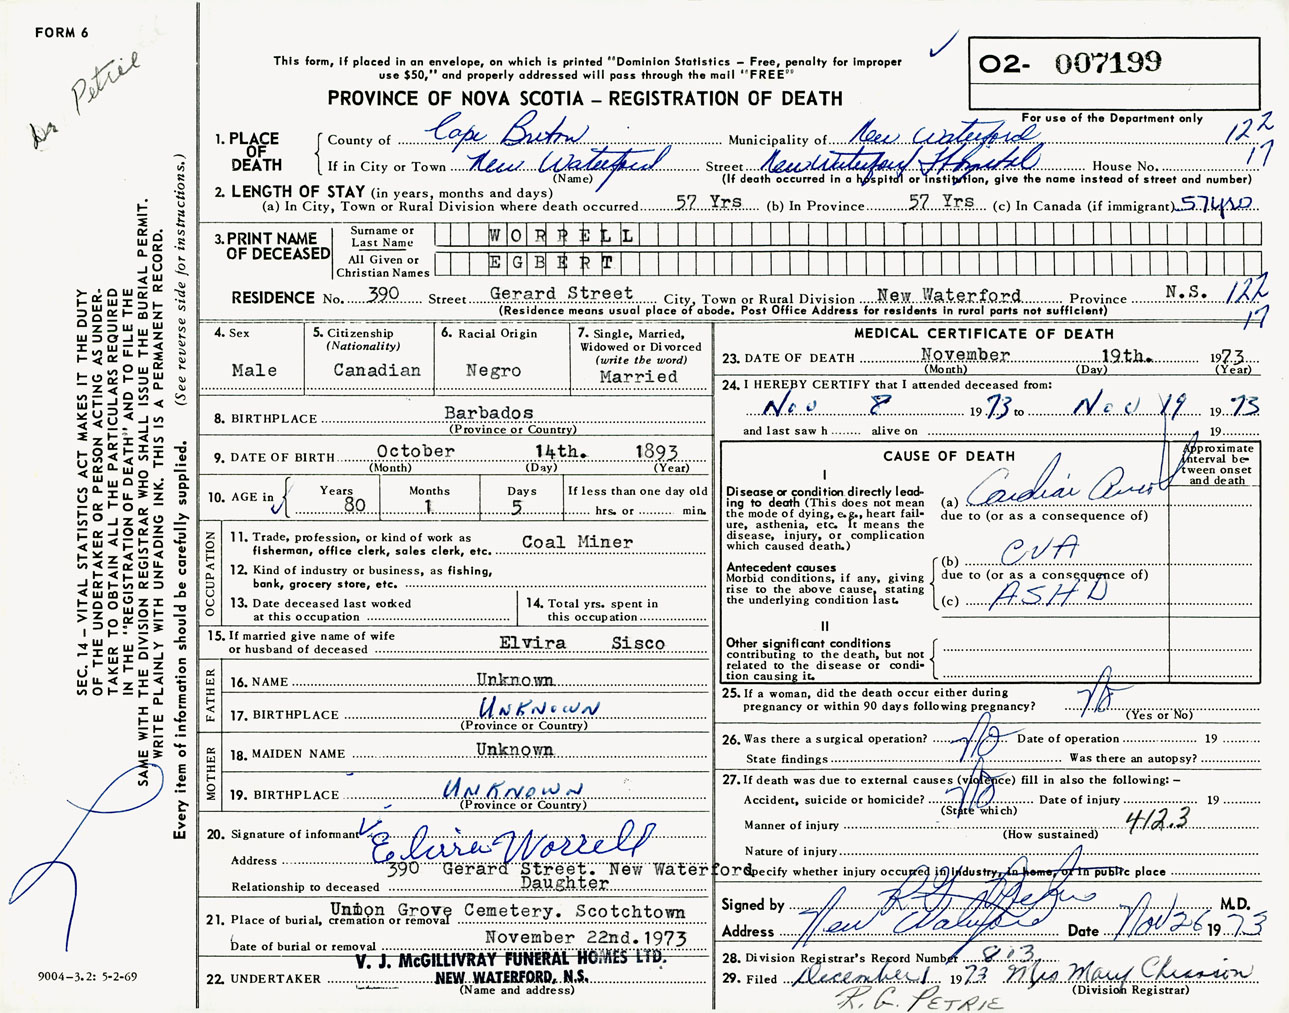 FORM 6
Dr Petrie
This form, if placed in an envelope, on which is printed "Dominion Statistics – Free, penalty for improper
use $50," and properly addressed will pass through the mail "FREE"
PROVINCE OF NOVA SCOTIA – REGISTRATION OF DEATH
02- 007199
For use of the Department only
122
17
1. PLACE OF DEATH
County of Cape Breton Municipality of New Waterford
If in City or Town New Waterford Street New Waterford Hospital House No.
(Name) (If death occurred in a hospital or institution, give the name instead of street and number)
2. LENGTH OF STAY (in years, months and days)
(a) In City, Town or Rural Division where death occurred 57 Yrs (b) In Province 57 Yrs. (c) In Canada (if immigrant) 57 yrs
3. PRINT NAME OF DECEASED
Surname or Last Name WORRELL
All Given or Christian Names EGBERT
RESIDENCE No. 390 Street Gerard Street City, Town or Rural Division New Waterford Province N.S. 122
(Residence means usual place of abode. Post Office Address for residents in rural parts not sufficient) 17
4. Sex
Male
5. Citizenship
(Nationality)
Canadian
6. Racial Origin
Negro
7. Single, Married,
Widowed or Divorced
(write the word)
Married
8. BIRTHPLACE Barbados
(Province or Country)
9. DATE OF BIRTH October 14th. 1893
(Month) (Day) (Year)
10. AGE in
Years Months Days If less than one day old
80 1 5 hrs. or min.
OCCUPATION
11. Trade, profession, or kind of work as
fisherman, office clerk, sales clerk, etc. Coal Miner
12. Kind of industry or business, as fishing,
bank, grocery store, etc.
13. Date deceased last worked
at this occupation
14. Total yrs. spent in
this occupation
15. If married give name of wife
or husband of deceased Elvira Sisco
FATHER
16. NAME Unknown
17. BIRTHPLACE UNKNOWN
(Province or Country)
MOTHER
18. MAIDEN NAME Unknown
19. BIRTHPLACE UNKNOWN
(Province or Country)
20. Signature of informant Elvira Worrell
Address 390 Gerard Street. New Waterford.
Relationship to deceased Daughter
21. Place of burial, cremation or removal Union Grove Cemetery. Scotchtown
Date of burial or removal November 22nd.1973
22. UNDERTAKER V. J. McGILLIVRAY FUNERAL HOMES LTD.
NEW WATERFORD, N.S.
(Name and address)
MEDICAL CERTIFICATE OF DEATH
23. DATE OF DEATH November 19th. 1973
(Month) (Day) (Year)
24. I HEREBY CERTIFY that I attended deceased from:
Nov 8 1973 to Nov 19 1973
and last saw h alive on 19
CAUSE OF DEATH
Approximate
interval be-
tween onset
and death
I
Disease or condition directly lead-
ing to death (This does not mean
the mode of dying, e.g., heart fail-
ure, asthenia, etc. It means the
disease, injury, or complication
which caused death.)
(a) Cardiac Arrest
due to (or as a consequence of)
Antecedent causes
Morbid conditions, if any, giving
rise to the above cause, stating
the underlying condition last.
(b) CVA
due to (or as a consequence of)
(c) ASHD
II
Other significant conditions
contributing to the death, but not
related to the disease or condi-
tion causing it.
25. If a woman, did the death occur either during
pregnancy or within 90 days following pregnancy? No
(Yes or No)
26. Was there a surgical operation? No Date of operation 19
State findings Was there an autopsy?
27. If death was due to external causes (violence) fill in also the following: –
Accident, suicide or homicide? No Date of injury 19
(State which)
Manner of injury 412.3
(How sustained)
Nature of injury
Specify whether injury occurred in Industry, in home, or in public place
Signed by R G Petrie M.D.
Address New Waterford Date Nov 26 1973
28. Division Registrar's Record Number 813
29. Filed December 1 1973 Mrs Mary Chiasson
(Division Registrar)
R. G. PETRIE
SEC. 14 – VITAL STATISTICS ACT MAKES IT THE DUTY
OF THE UNDERTAKER OR PERSON ACTING AS UNDER-
TAKER TO OBTAIN ALL THE PARTICULARS REQUIRED
IN THE "REGISTRATION OF DEATH" AND TO FILE THE
SAME WITH THE DIVISION REGISTRAR WHO SHALL ISSUE THE BURIAL PERMIT.
WRITE PLAINLY WITH UNFADING INK. THIS IS A PERMANENT RECORD.
Every item of information should be carefully supplied. (See reverse side for instructions.)
9004-3.2: 5-2-69